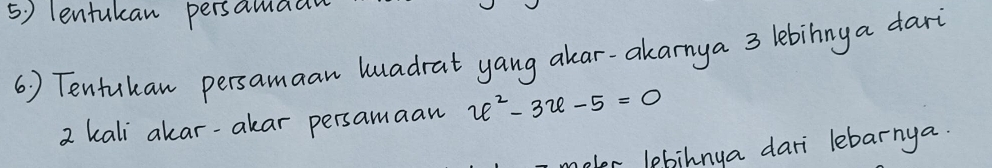 5.) Tentukan persamaan
6.) Tentukan persamaan kuadrat yang akar-akarnya 3 lebihnya dari
2 kali akar-akar persamaan x² - 3x - 5 = 0
meter lebihnya dari lebarnya.